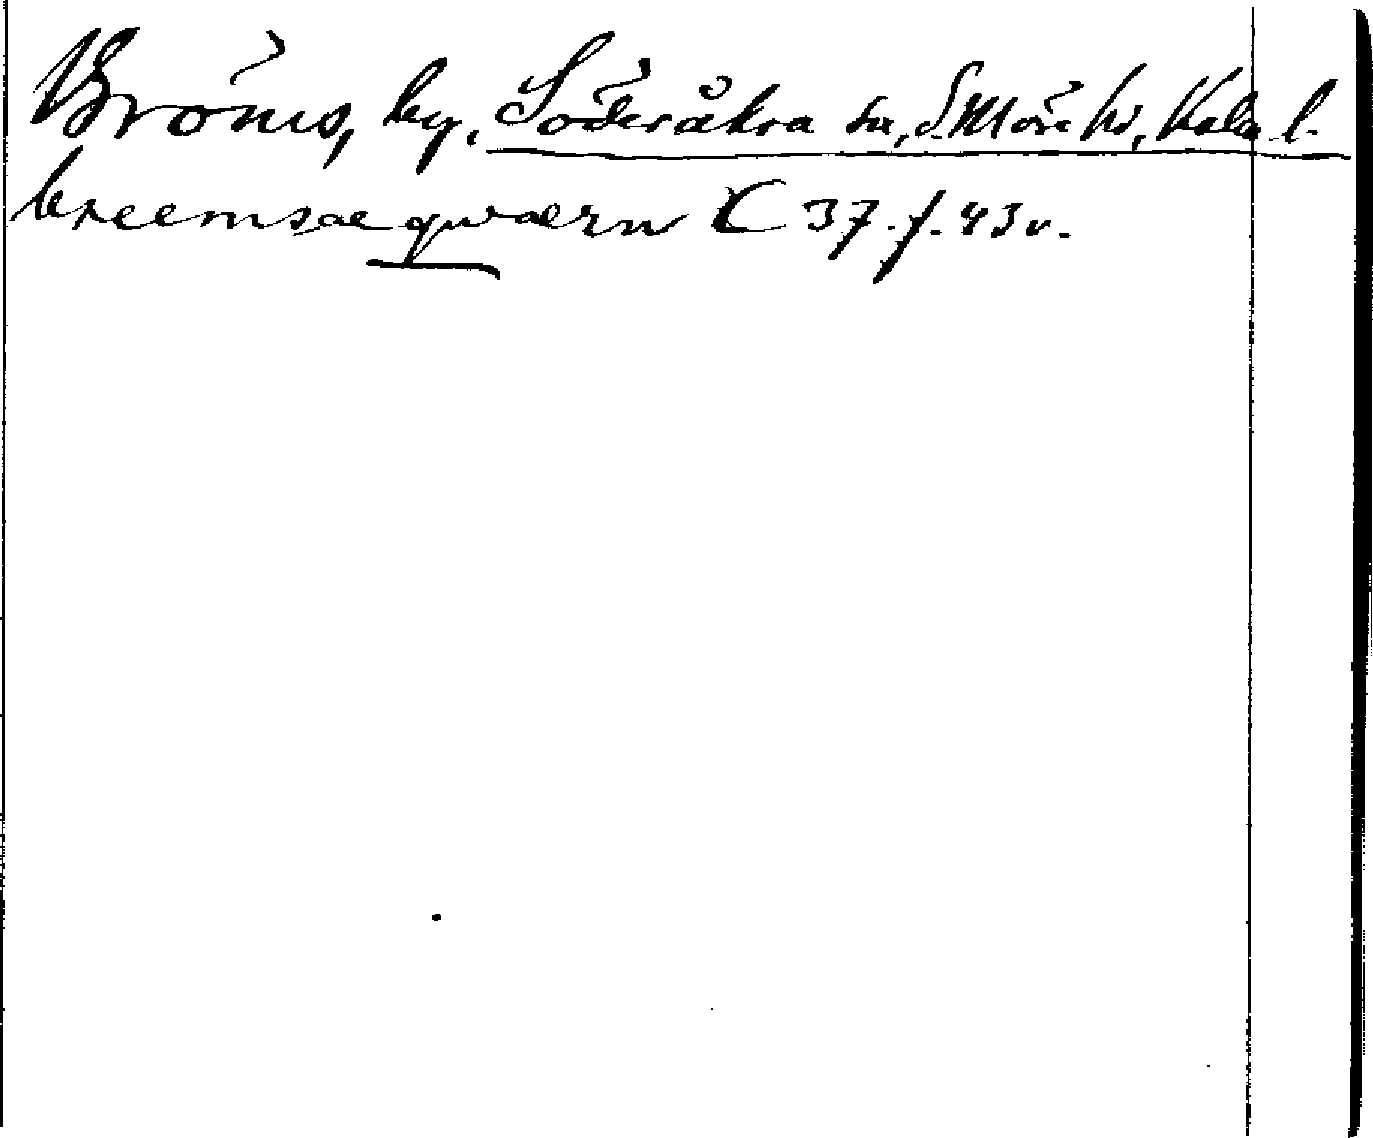 Bröms, by, Söderåkra sn, S. Möre hd, Kalm l.
breemsæqwærn C 37. f. 43v.